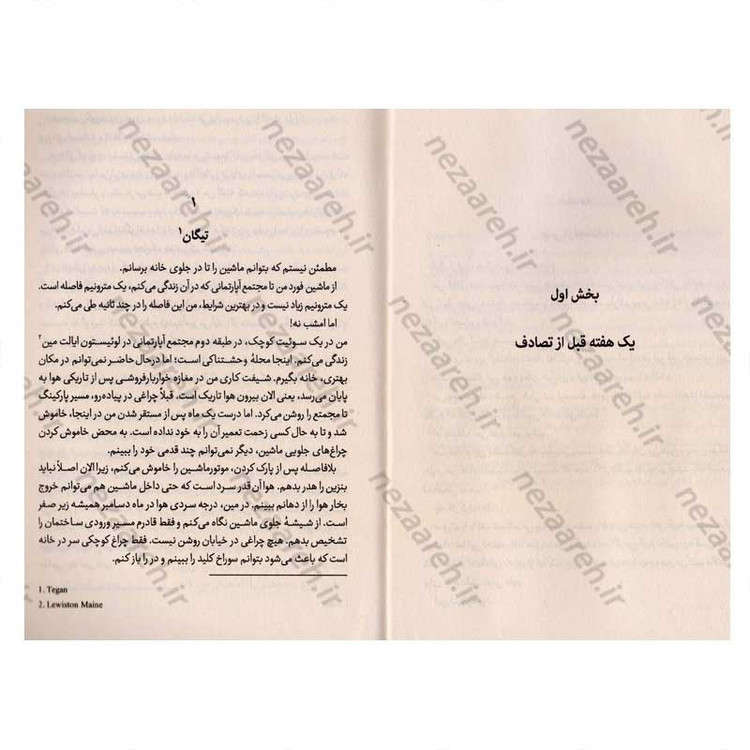 بخش اول
یک هفته قبل از تصادف
۱
تیگان۱
مطمئن نیستم که بتوانم ماشین را تا در جلوی خانه برسانم.
از ماشین فورد من تا مجتمع آپارتمانی که در آن زندگی می‌کنم، یک مترونیم فاصله است.
یک مترونیم زیاد نیست و در بهترین شرایط، من این فاصله را در چند ثانیه طی می‌کنم.
اما امشب نه!
من در یک سوئیت کوچک، در طبقه دوم مجتمع آپارتمانی در لوئیستون ایالت مین۲
زندگی می‌کنم. اینجا محلهٔ وحشتناکی است؛ اما درحال حاضر نمی‌توانم در مکان
بهتری، خانه بگیرم. شیفت کاری من در مغازه خواربارفروشی پس از تاریکی هوا به
پایان می‌رسد، یعنی الان بیرون هوا تاریک است. قبلاً چراغی در پیاده‌رو، مسیر پارکینگ
تا مجتمع را روشن می‌کرد. اما درست یک ماه پس از مستقر شدن من در اینجا، خاموش
شد و تا به حال کسی زحمت تعمیر آن را به خود نداده است. به محض خاموش کردن
چراغ‌های جلویی ماشین، دیگر نمی‌توانم چند قدمی خود را ببینم.
بلافاصله پس از پارک کردن، موتورماشین را خاموش می‌کنم، زیرا الان اصلاً نباید
بنزین را هدر بدهم. هوا آن قدر سرد است که حتی داخل ماشین هم می‌توانم خروج
بخار هوا را از دهانم ببینم. در مین، درجه سردی هوا در ماه دسامبر همیشه زیر صفر
است. از شیشهٔ جلوی ماشین نگاه می‌کنم و فقط قادرم مسیر ورودی ساختمان را
تشخیص بدهم. هیچ چراغی در خیابان روشن نیست. فقط چراغ کوچکی سر در خانه
است که باعث می‌شود بتوانم سوراخ کلید را ببینم و در را باز کنم.
1. Tegan
2. Lewiston Maine
nezaareh.ir
nezaareh.ir
nezaareh.ir
nezaareh.ir
nezaareh.ir
nezaareh.ir
nezaareh.ir
nezaareh.ir
nezaareh.ir